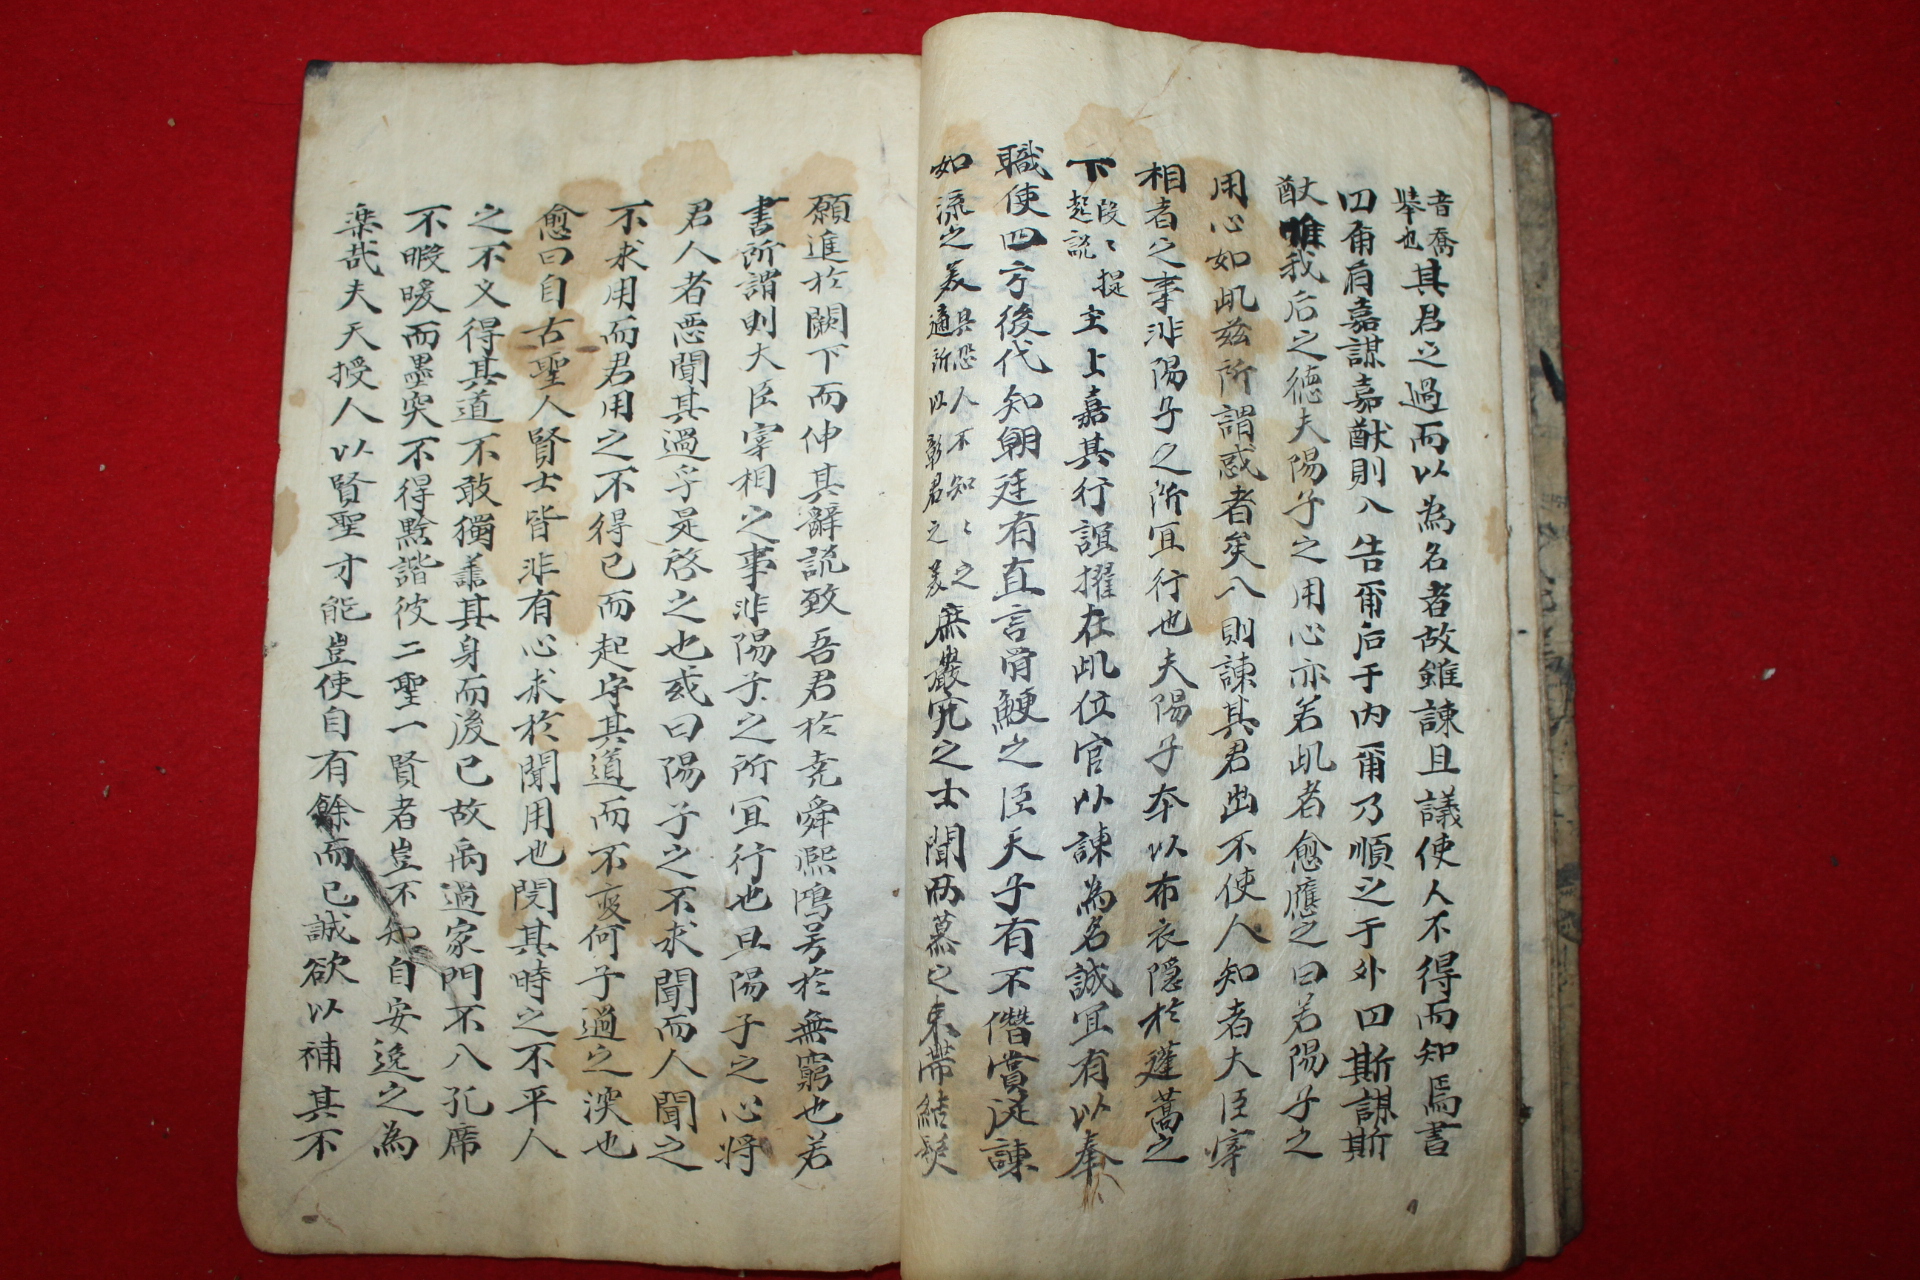 音喬
擧也
其君之過而以為名者故雖諫且議使人不得而知焉書
曰爾有嘉謀嘉猷則入告爾后于内爾乃順之于外曰斯謀斯
猷惟我后之德夫陽子之用心亦若此者愈應之曰若陽子之
用心如此茲所謂惑者矣入則諫其君出不使人知者大臣宰
相者之事非陽子之所宜行也夫陽子本以布衣隱於蓬蒿之
下
段〻提
起説
主上嘉其行誼擢在此位官以諫為名誠宜有以奉
職使四方後代知朝廷有直言骨鯁之臣天子有不僭賞從諫
如流之美
其恐人不知〻之
適所以彰君之美
庶巖穴之士聞而慕之束帶結髮
願進於闕下而伸其辭説致吾君於尭舜熙鴻号於無窮也若
書所謂則大臣宰相之事非陽子之所宜行也且陽子之心將
君人者惡聞其過乎是啓之也或曰陽子之不求聞而人聞之
不求用而君用之不得已而起守其道而不変何子過之深也
愈曰自古聖人賢士皆非有心求於聞用也閔其時之不平人
之不义得其道不敢獨善其身而後已故禹過家門不入孔席
不暇暖而墨突不得黔諧彼二聖一賢者豈不知自安逸之為
楽哉夫天授人以賢聖才能豈使自有餘而已誠欲以補其不